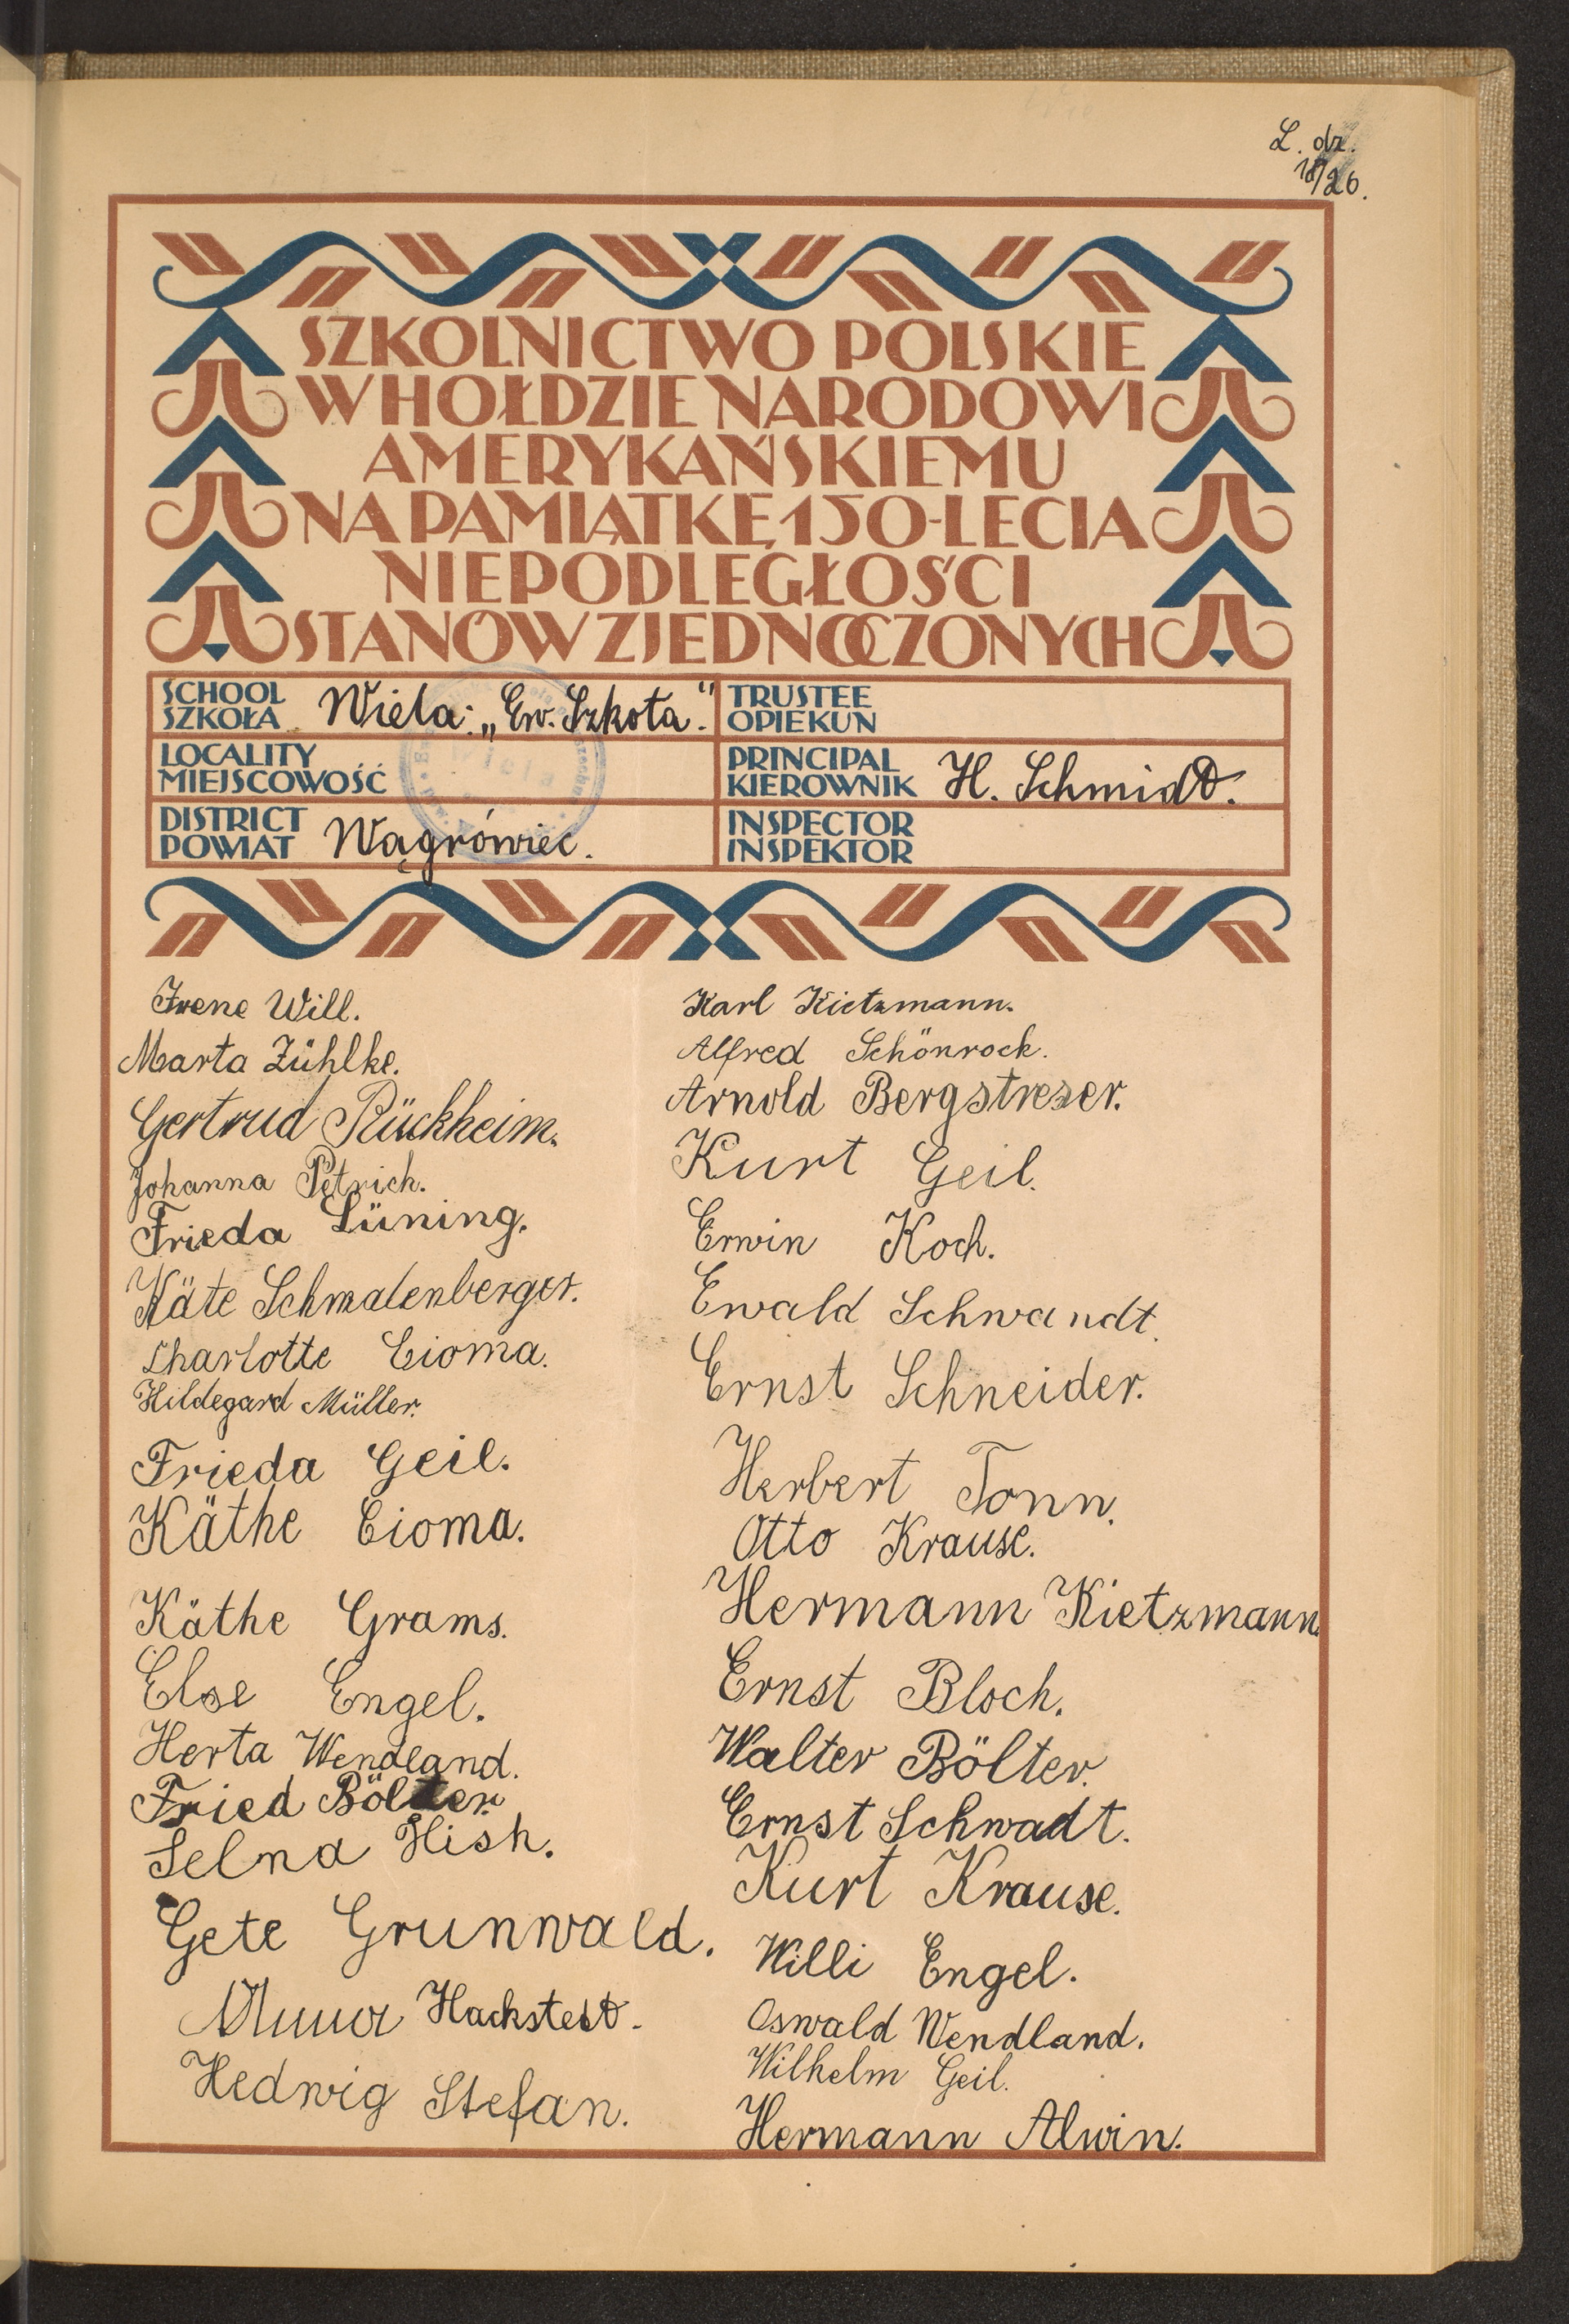 L. dz.
18/26.
SZKOLNICTWO POLSKIE
W HOŁDZIE NARODOWI
AMERYKAŃSKIEMU
NA PAMIĄTKĘ 150-LECIA
NIEPODLEGŁOŚCI
STANÓW ZJEDNOCZONYCH
SCHOOL
SZKOŁA Wiela: „Ew. Szkoła."
LOCALITY
MIEJSCOWOŚĆ
DISTRICT
POWIAT Wągrówiec.
TRUSTEE
OPIEKUN
PRINCIPAL
KIEROWNIK H. Schmidt.
INSPECTOR
INSPEKTOR
Irene Will.
Marta Zühlke.
Gertrud Rückheim.
Johanna Petrich.
Frieda Lüning.
Käte Schmalenberger.
Charlotte Cioma.
Hildegard Müller.
Frieda Geil.
Käthe Cioma.
Käthe Grams.
Else Engel.
Herta Wendland.
Fried Bölter.
Selma Hish.
Gete Grunwald.
Hackstedt.
Hedwig Stefan.
Karl Kietzmann.
Alfred Schönrock.
Arnold Bergstreser.
Kurt Geil.
Erwin Koch.
Ewald Schwandt.
Ernst Schneider.
Herbert Tonn.
Otto Krause.
Hermann Kietzmann.
Ernst Bloch.
Walter Bölter.
Ernst Schwadt.
Kurt Krause.
Willi Engel.
Oswald Wendland.
Wilhelm Geil.
Hermann Alwin.